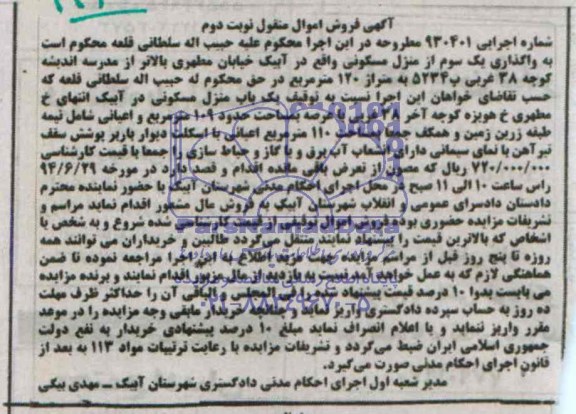 آگهی فروش اموال منقول نوبت دوم
شماره اجرایی ۹۳۰۴۰۱ مطروحه در این اجرا محکوم علیه حبیب اله سلطانی قلعه محکوم است
به واگذاری یک سوم از منزل مسکونی واقع در آبیک خیابان مطهری بالاتر از مدرسه اندیشه
کوچه ۳۸ غربی پ۵۲۳۴ به متراژ ۱۲۰ مترمربع در حق محکوم له حبیب اله سلطانی قلعه که
حسب تقاضای خواهان این اجرا نسبت به توقیف یک باب منزل مسکونی در آبیک انتهای خ
مطهری خ هویزه کوچه آخر ۳۸ غربی با عرصه بمساحت حدود ۱۰۹ مترمربع و اعیانی شامل نیمه
طبقه زیرین زمین و همکف جمعا ۱۱۰ مترمربع اعیانی با اسکلت دیوار باربر پوشش سقف
تیرآهن با نمای سیمانی دارای انشعاب آب برق و گاز و حیاط سازی را جمعا با قیمت کارشناسی
۷۲۰/۰۰۰/۰۰۰ ریال که مصون از تعرض باقی مانده اقدام و قصد دارد در مورخه ۹۴/۶/۲۹
راس ساعت ۱۰ الی ۱۱ صبح در محل اجرای احکام مدنی شهرستان آبیک با حضور نماینده محترم
دادستان دادسرای عمومی و انقلاب شهرستان آبیک به فروش مال مذکور اقدام نماید مراسم و
تشریفات مزایده حضوری بوده فروش اموال توقیفی از قیمت کارشناسی شده شروع و به شخص یا
اشخاص که بالاترین قیمت را پیشنهاد نمایند منتقل می‌گردد طالبین و خریداران می توانند همه
روزه تا پنج روز قبل از مراسم مزایده جهت مزید اطلاع به این اجرا مراجعه نموده تا ضمن
هماهنگی لازم که به عمل خواهد آمد نسبت به بازدید از مال مزبور اقدام نمایند و برنده مزایده
می بایست بدوا ۱۰ درصد قیمت پیشنهادی را فی المجلس و مابقی آن را حداکثر ظرف مهلت
ده روز به حساب سپرده دادگستری واریز نماید و چنانچه خریدار مابقی وجه مزایده را در موعد
مقرر واریز ننماید و یا اعلام انصراف نماید مبلغ ۱۰ درصد پیشنهادی خریدار به نفع دولت
جمهوری اسلامی ایران ضبط می‌گردد و تشریفات مزایده با رعایت ترتیبات مواد ۱۱۳ به بعد از
قانون اجرای احکام مدنی صورت می‌گیرد.
مدیر شعبه اول اجرای احکام مدنی دادگستری شهرستان آبیک ــ مهدی بیگی